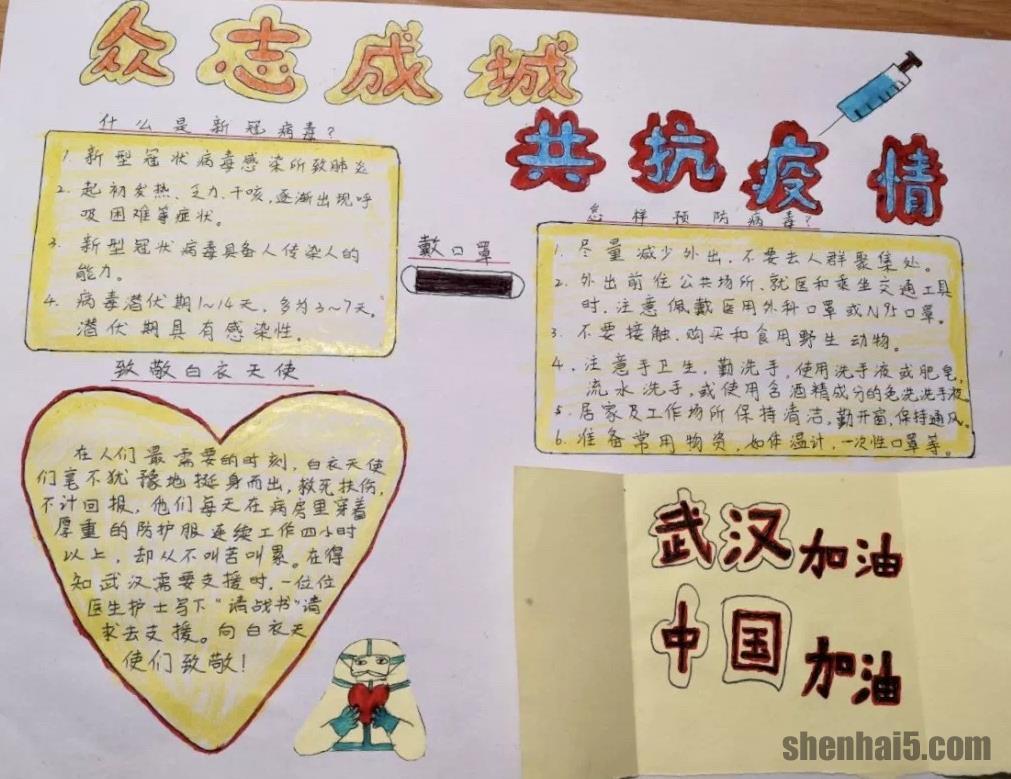 众志成城
共抗疫情
什么是新冠病毒?
1. 新型冠状病毒感染所致肺炎
2. 起初发热、乏力、干咳,逐渐出现呼
吸困难等症状。
3. 新型冠状病毒具备人传染人的
能力。
4. 病毒潜伏期1~14天,多为3~7天。
潜伏期具有感染性。
戴口罩
怎样预防病毒?
1. 尽量减少外出,不要去人群聚集处。
2. 外出前往公共场所、就医和乘坐交通工具
时,注意佩戴医用外科口罩或N95口罩。
3. 不要接触、购买和食用野生动物。
4. 注意手卫生,勤洗手,使用洗手液或肥皂,
流水洗手,或使用含酒精成分的免洗洗手液。
5. 居家及工作场所保持清洁,勤开窗,保持通风。
6. 准备常用物资,如体温计,一次性口罩等。
致敬白衣天使
在人们最需要的时刻,白衣天使
们毫不犹豫地挺身而出,救死扶伤,
不计回报,他们每天在病房里穿着
厚重的防护服连续工作四小时
以上,却从不叫苦叫累。在得
知武汉需要支援时,一位位
医生护士写下“请战书”请
求去支援。向白衣天
使们致敬!
武汉加油
中国加油
shenhai5.com